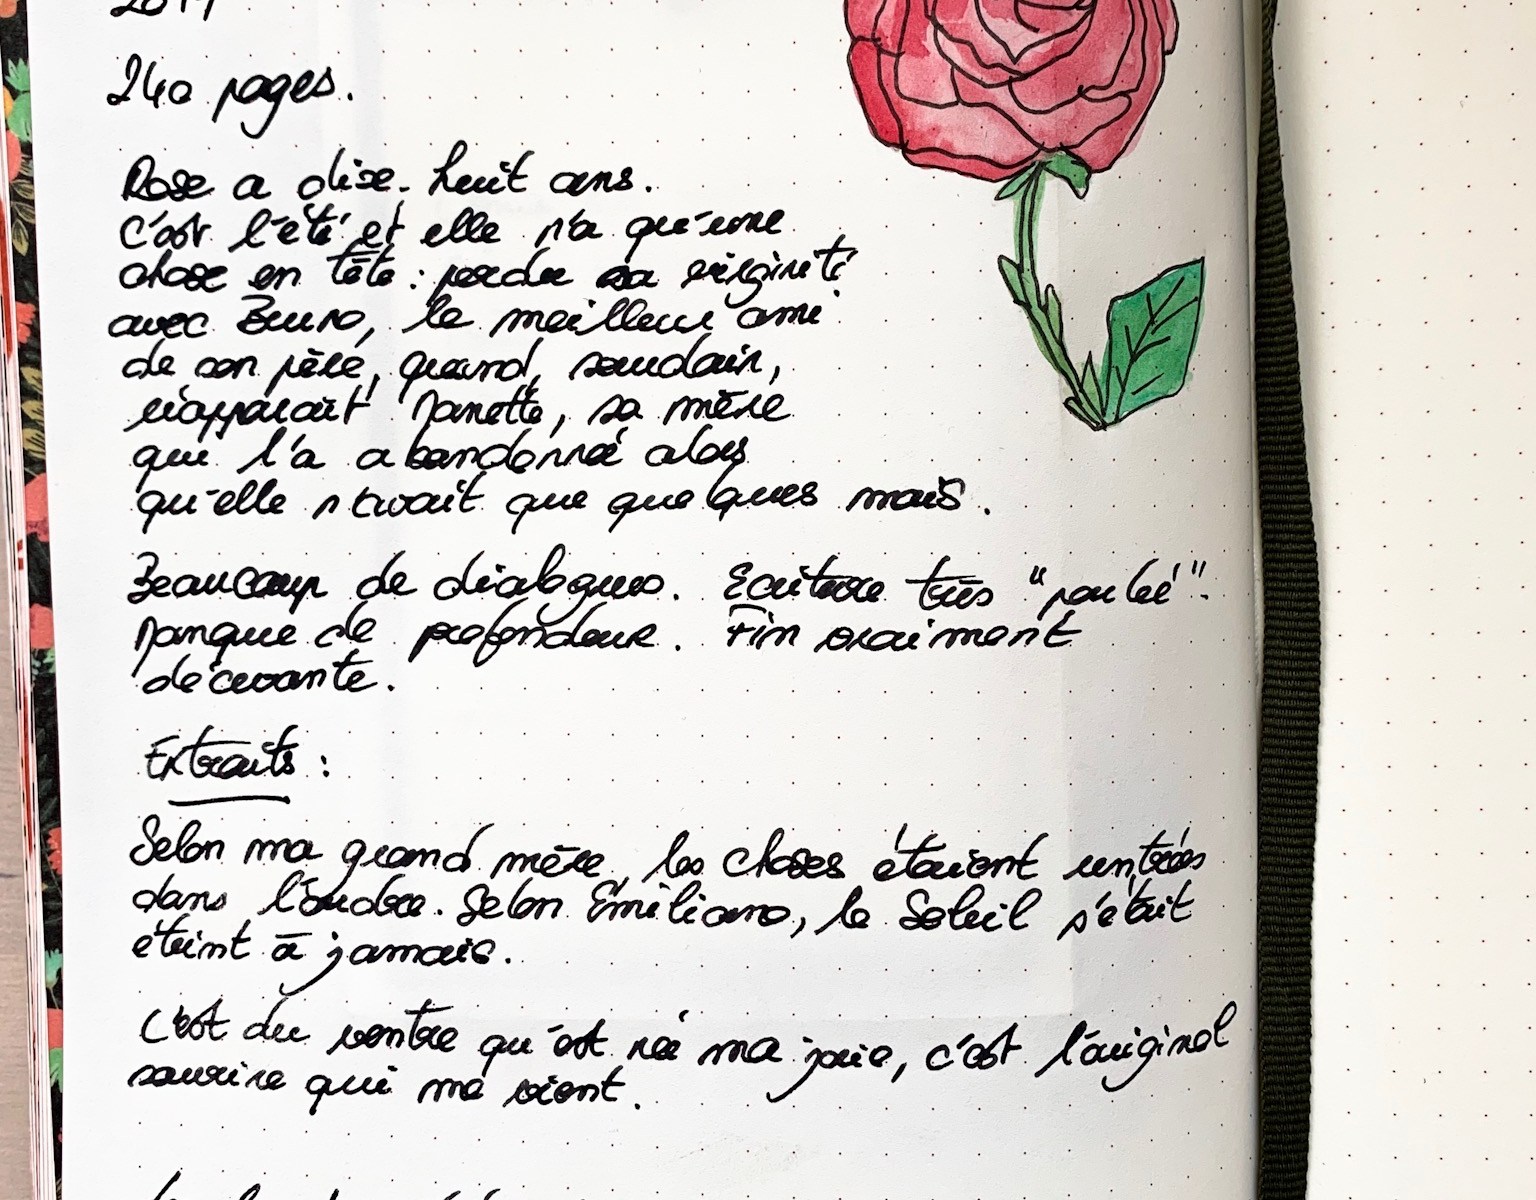 240 pages.
Rose a dix-huit ans.
C'est l'été et elle n'a qu'une
chose en tête : perdre sa virginité
avec Bruno, le meilleur ami
de son père, quand, soudain,
réapparaît Nanette, sa mère
qui l'a abandonné alors
qu'elle n'avait que quelques mois.
Beaucoup de dialogues. Ecriture très "parlé".
Manque de profondeur. Fin vraiment
décevante.
Extraits :
Selon ma grand mère, les choses étaient rentrées
dans l'ordre. Selon Emiliano, le Soleil s'était
éteint à jamais.
C'est du ventre qu'est né ma joie, c'est l'original
sourire qui me vient.